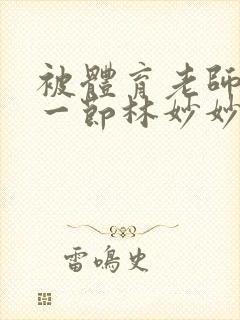 被體育老師
一節林妙妙
雷鳴史